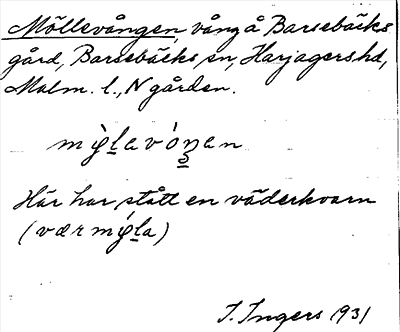 Möllevången, vång å Barsebäcks
gård, Barsebäcks sn, Harjagers hd,
Malm. l., N gården.
mỳlavóŋan
Här har stått en väderkvarn
(værmýla)
I. Ingers 1931